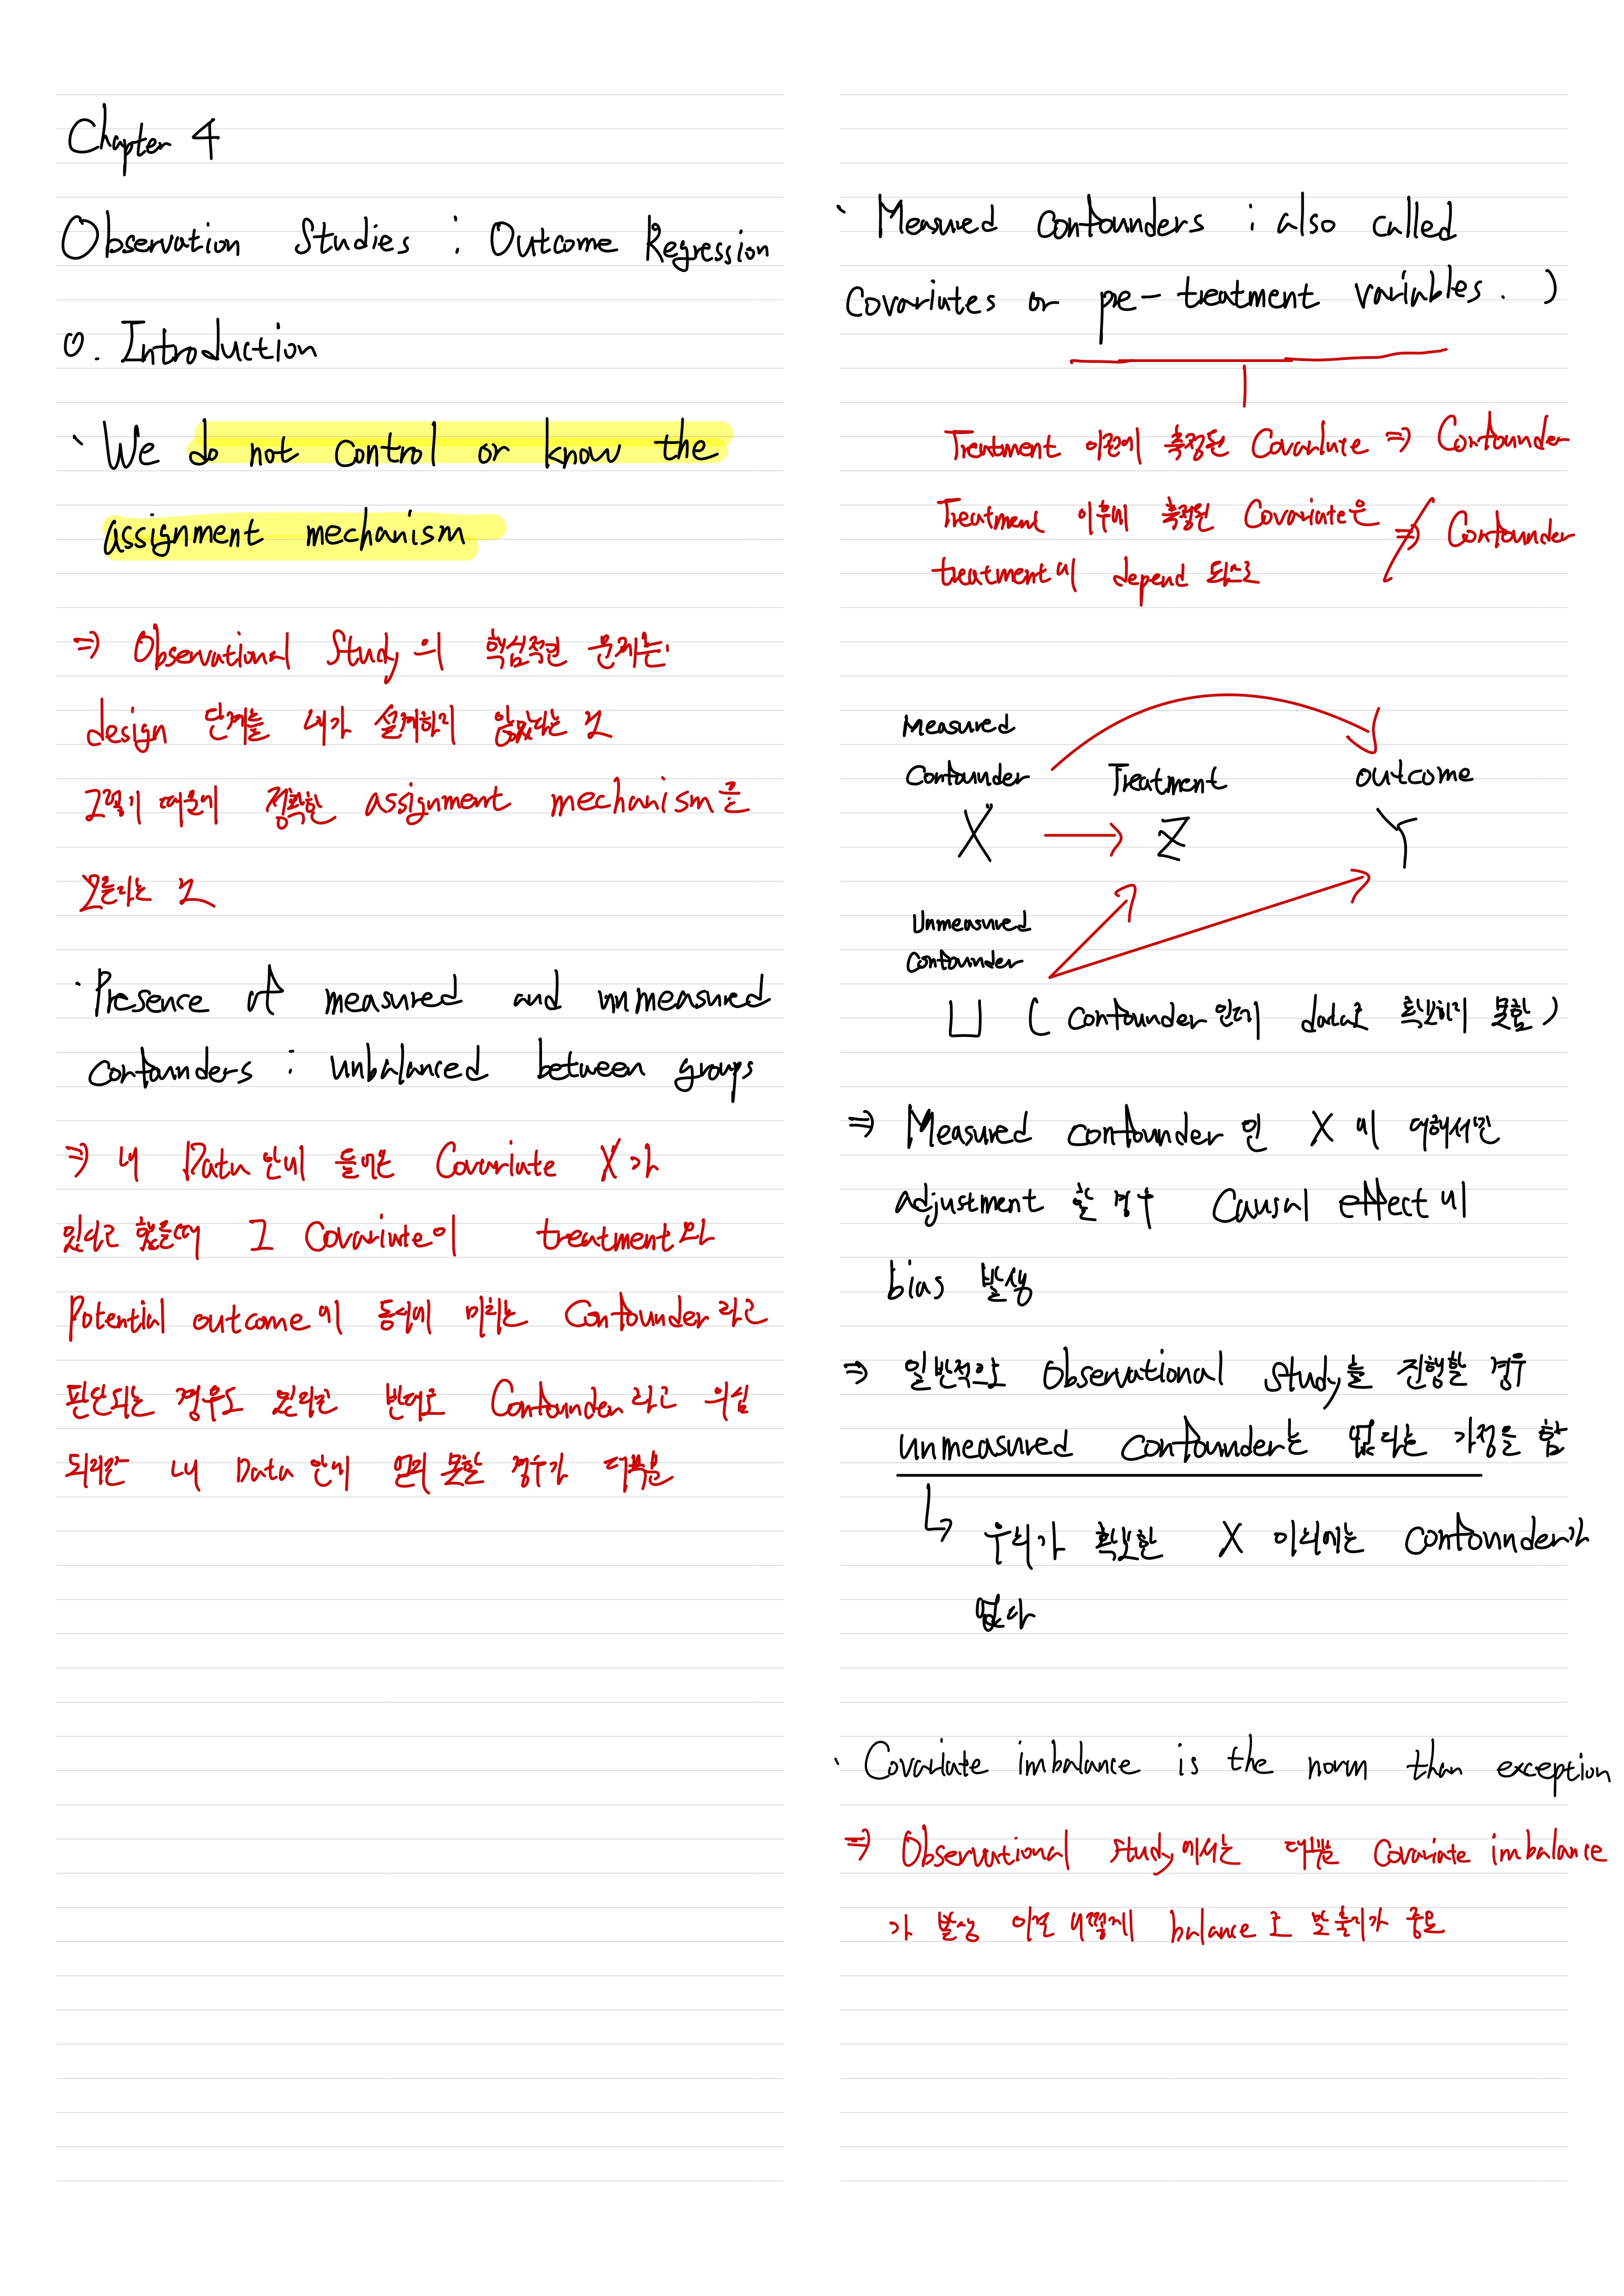 Chapter 4
Observation Studies : Outcome Regression
0. Introduction
We do not control or know the
assignment mechanism
⇒ Observational Study 의 핵심적인 문제는
design 단계를 내가 설계하지 않았다는 것
그렇기 때문에 정확한 assignment mechanism을
모른다는 것
· Presence of measured and unmeasured
confounders : unbalanced between groups
⇒ 내 Data 안에 들어온 Covariate X가
있다고 했을때 그 Covariate이 treatment와
Potential outcome에 동시에 미치는 Confounder라고
판단되는 경우도 반대로 Confounder라고 의심
되지만 내 Data 안에 못할 경우가
Measured confounders : also called
Covariates or pre-treatment variables. )
Treatment 이전에 측정된 Covariate ⇒ Confounder
Treatment 이후에 측정된 Covariate은 ⇏ Confounder
treatment에 depend 되므로
Measured
Confounder Treatment outcome
X → Z Y
Unmeasured
Confounder
U ( Confounder인데 data로 확보하지 못함 )
⇒ Measured confounder 인 X 에 대해서만
adjustment 할 경우 Causal effect에
bias 발생
⇒ 일반적으로 Observational study를 진행할 경우
unmeasured confounder는 없다는 가정을 함
↳ 우리가 확보한 X 이외에는 Confounder가
없다
Covariate imbalance is the norm than exception
⇒ Observational study에서는 대부분 Covariate imbalance
가 발생 이걸 어떻게 balance로 맞출지가 중요